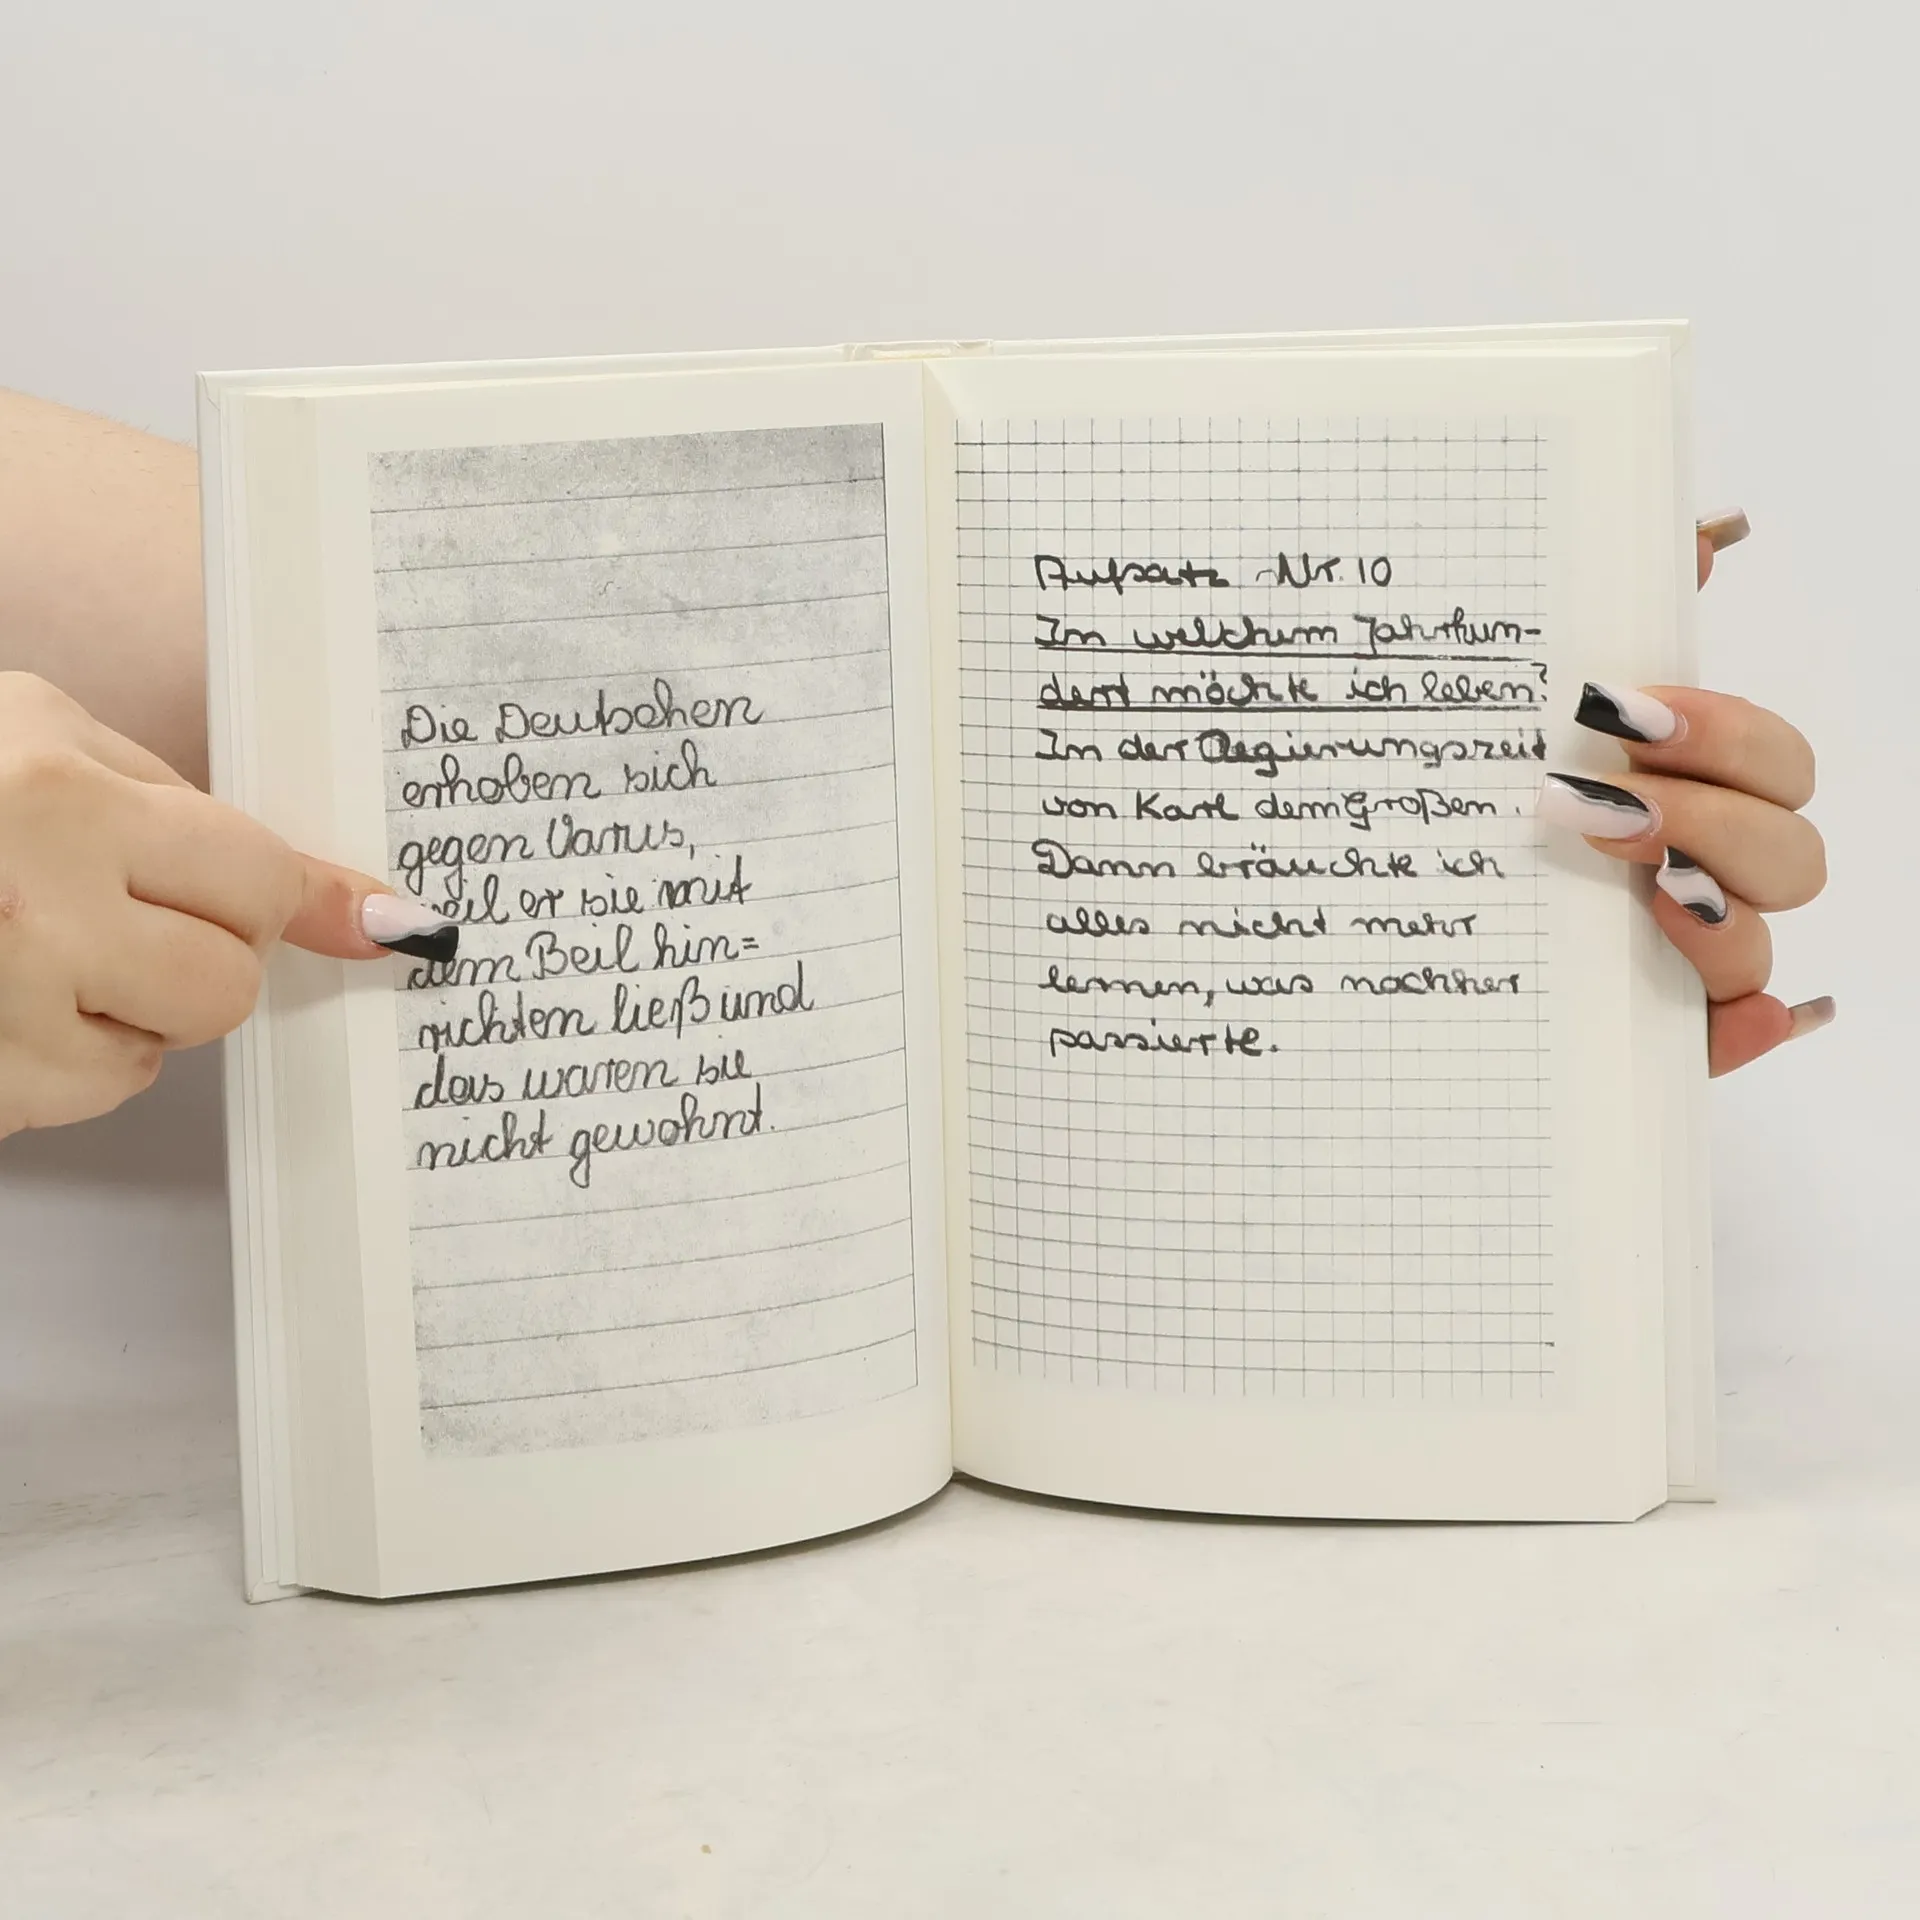 Die Deutschen
erhoben sich
gegen Varus,
weil er sie mit
dem Beil hin=
richten ließ und
das waren sie
nicht gewohnt.
Aufsatz Nr. 10
Im welchem Jahrhun-
dert möchte ich leben?
In der Regierungszeit
von Karl dem Großen.
Dann bräuchte ich
alles nicht mehr
lernen, was nachher
passierte.